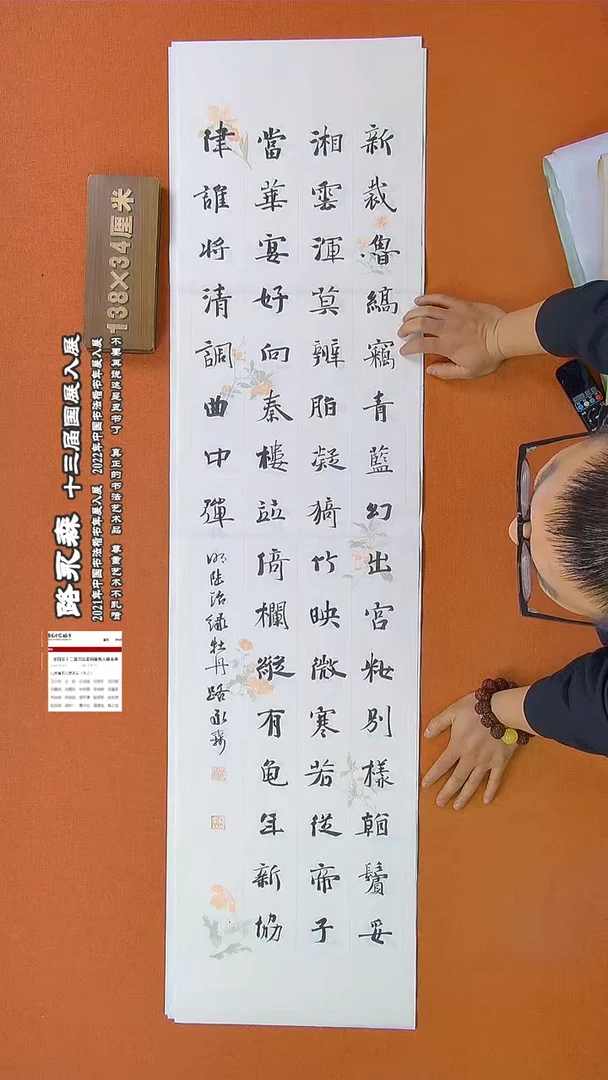 新裁魯縞竊青藍幻出宮粧別樣翰鬢妥
湘雲渾莫辨脂凝猗竹映微寒若從帝子
當華宴好向秦樓竝倚欄縱有龟年新協
律誰將清調曲中彈 明陸治綠牡丹 路永森
138×34厘米
路永森 十三届国展入展
2021年中国书法楷书年展入展 2022年中国书法楷书年展入展
不要再说这是丑书了 真正的书法艺术品 尊重艺术不乱喷